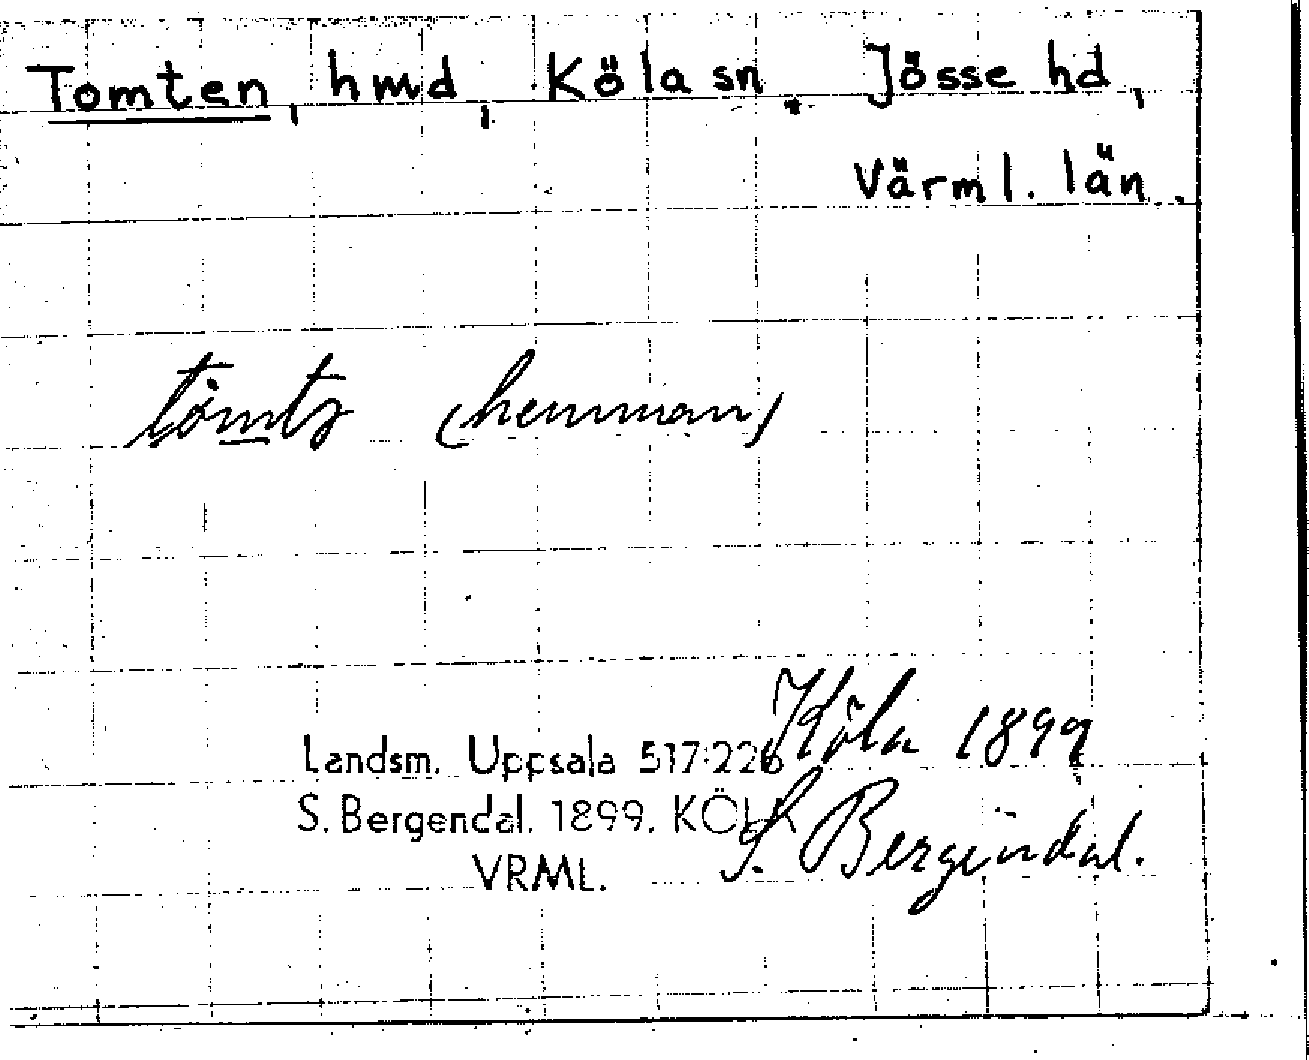 Tomten, hmd, Köla sn. Jösse hd,
Värml. län.
(hemman)
Köla 1899
Landsm. Uppsala 517:226
S. Bergendal. 1899. KÖLA
S. Bergendal.
VRML.